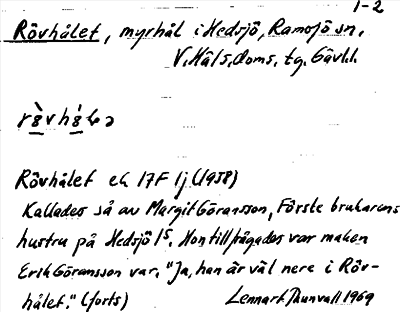 1-2
Rövhålet, myrhål i Hedsjö, Ramsjö sn,
V. Häls. doms. tg. Gävl.l.
Rövhålet ek 17F 1j (1958)
Kallades så av Margit Göransson, Förste brukarens
hustru på Hedsjö 1⁵. Hon tillfrågades var maken
Erik Göransson var. "Ja, han är väl nere i Röv-
hålet." (forts) Lennart Thunvall 1969